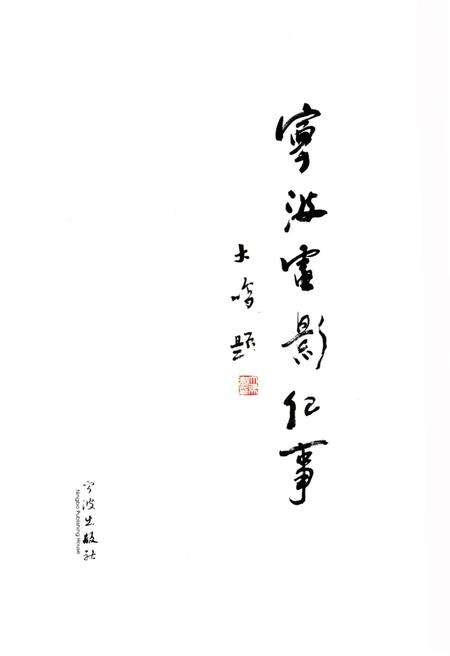 寧波電影紀事
大鳴題
宁波出版社
Ningbo Publishing House